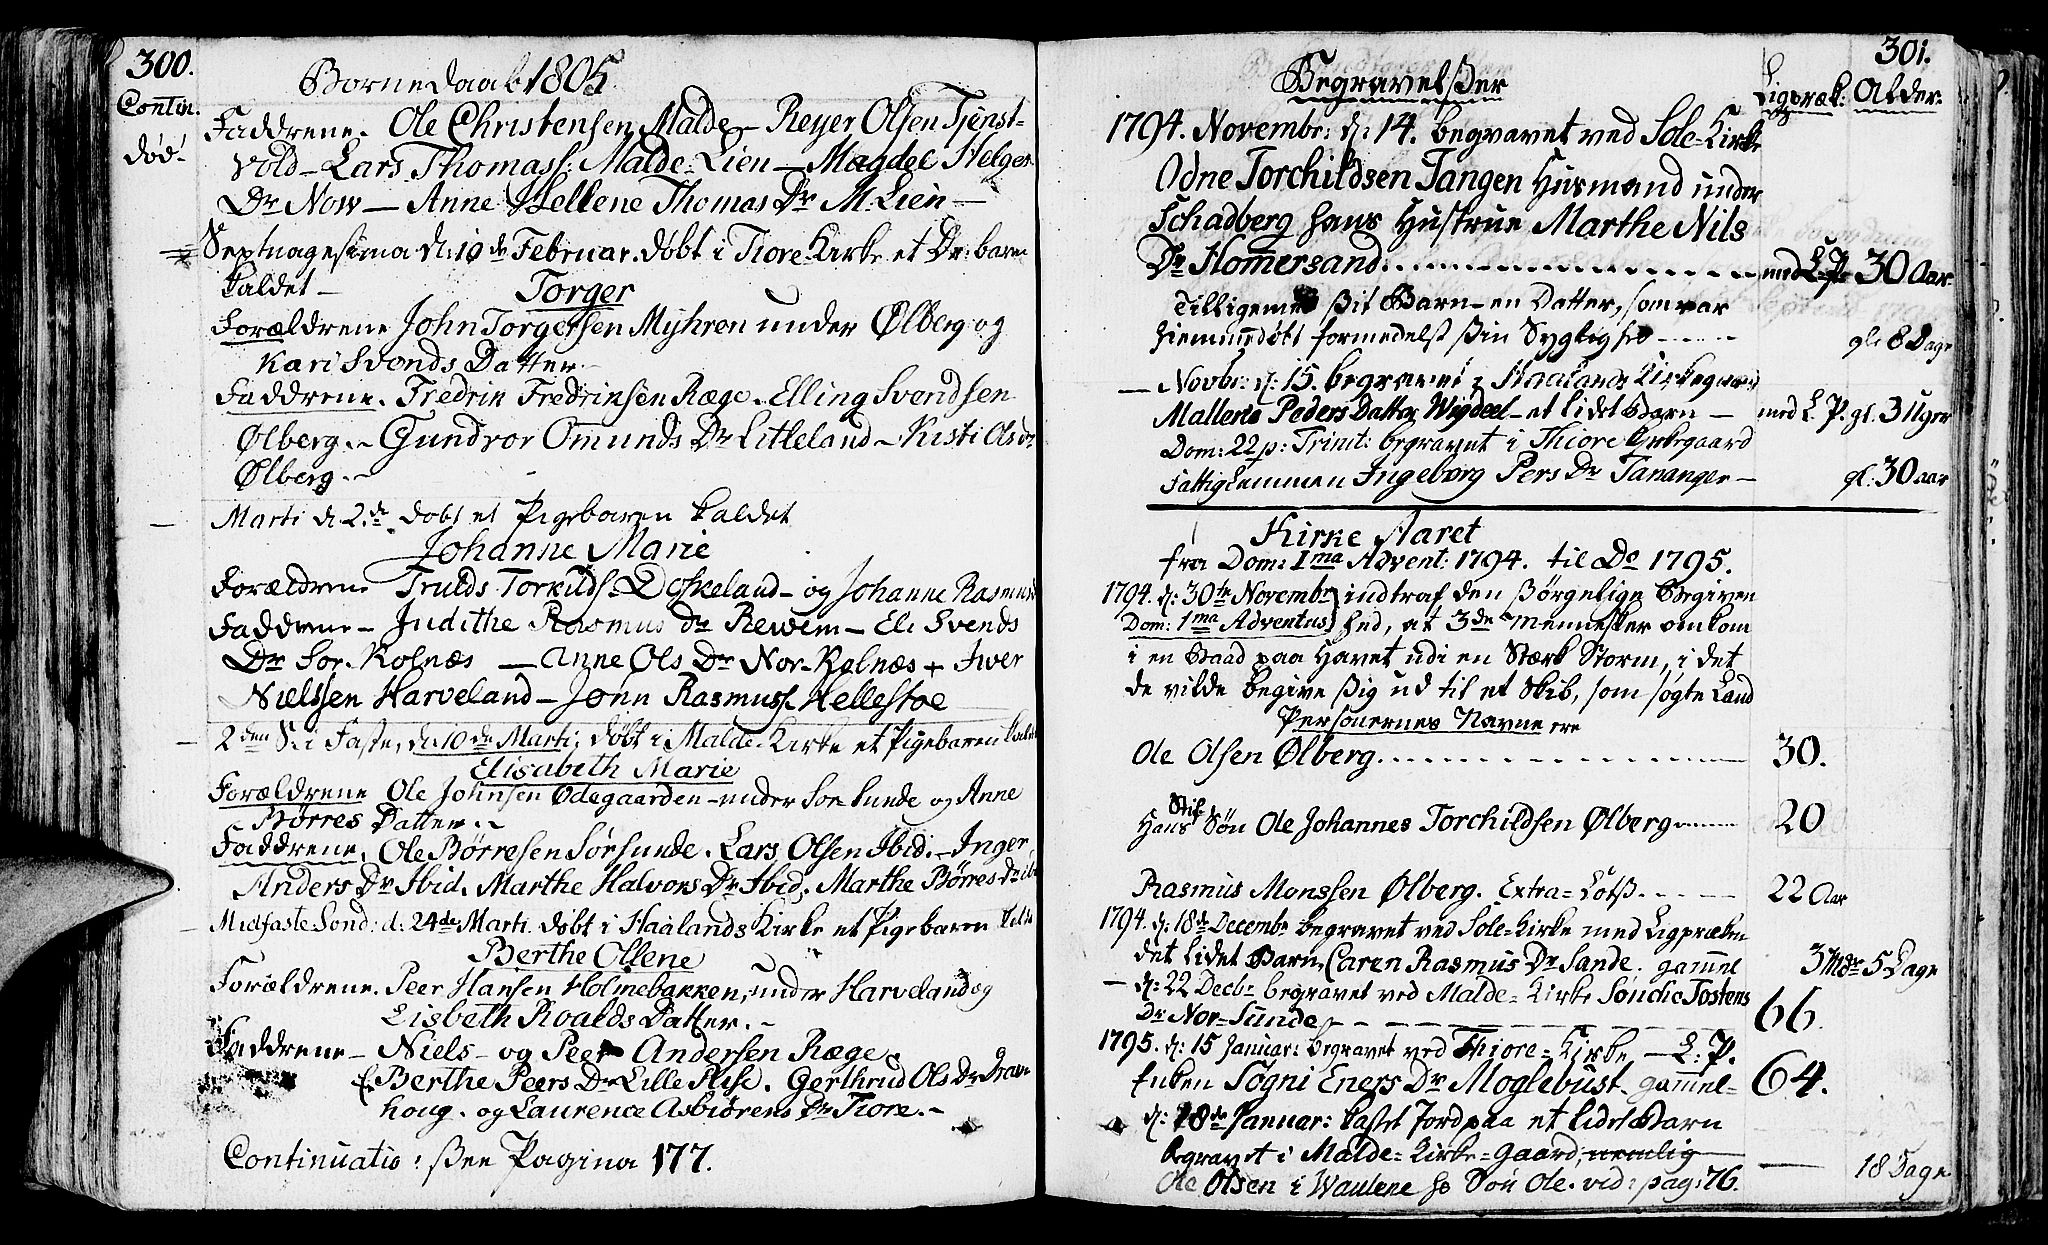 300.
Contin.
død.
Børnedaab 1805
Faddrene. Ole Christensen Malde - Reyer Olsen Tjenst-
vold - Lars Thomass: Malde-Lien - Magdel Helges
Dr Now - Anne Hellene Thomas Dr M. Lien -
Septuagesima d: 10de Februar. døbt i Tiore Kirke et Dr: barn
kaldet -
Torger
Forældrene John Torgersen Myhren under Ølberg og
Kari Svends Datter -
Faddrene. Fredrin Fredrinsen Ræge. Elling Svendsen
Ølberg. - Gundvor Omunds Dr Litleland - Kisti Olsdr
Ølberg. -
- Marti d 2de døbt et Pigebaren kaldet
Johanne Marie
Forældrene Trulds Torkilds. Doskeland - og Johanne Rasmusd
Faddrene - Judithe Rasmus Dr Rewem - Eli Svends
Dr Sør-Kolnæs - Anne Ols Dr Nor-Kolnæs + Iver
Nielssen Harveland - Jonn Rasmuss. Hellestoe
- 2den S. i Faste, d: 10de Marti, døbt i Malde-Kirke et Pigebaren kaldet
Elisabeth Marie
Forældrene Ole Johnsen Ødegaarden - under Sør Sunde og Anne
Børres Datter. -
Faddrene. Ole Børresen Sør Sunde. Lars Olsen Ibid. - Inger
Anders Dr Ibid. Marthe Halvors Dr Ibid. Marthe Børres Dr ib
- Midfaste Sond: d: 24de Marti døbt i Haalands Kirke et Pigebaren
Berthe Ollene
Forældrene. Peer Hansen Holmebakken, under Harveland og
Lisbeth Roalds Datter. -
Faddrene - Niels - og Peer Andersen Ræge.
Berthe Peers Dr Lille Hese. Gerthrud Ols Dr Grann
houg. og Laurence Asbiørens Dr Tiore. -
Continuatio: see Pagina 177.
301.
Begravelsser
Ligpræk: Alder.
1794. Novembr: d: 14. begravet ved Sole-Kirke
Odne Torchildsen Tangen Husmand under
Schadberg hans Hustrue Marthe Nils
Dr Homersand. med L. P. 30 Aar.
Tilligemed sit Barn - en Datter, som var
hiemmedøbt formedelst sin Syglighed gl. 8 Dage
- Novbr: d: 15. begravet i Haalands Kirkegaard
Mallene Peders Datter Wigdeel - et lidet Barn - med L. P. gl. 3 Uger
Dom: 22 p: Trinit: begravet i Thiore Kirkegaard
Fattiglemmen Ingeborg Pers Dr Tananger - gl: 30 aar
Kirke Aaret
fra Dom: 1ma Advent: 1794. til Do 1795.
1794. d: 30te Novembr indtraf den sørgelige Begiven
Dom: 1ma Adventus hed, at 3de Mennesker omkom
i en Baad paa Havet udi en Stærk Storm, i det
de vilde begive sig ud til et Skib, som søgte Land
Personernes Navne ere
Ole Olsen Ølberg. 30.
Hans Stif Søn Ole Johannes Torchildsen Ølberg 20
Rasmus Monssen Ølberg. Extra-Lotß. 22 Aar
1794. d: 18de Decembr begravet ved Sole-Kirke med Ligpræken
det lidet Barn, Caren Rasmus Dr Sande. gammel 3 Mdr 5 Dage
- d: 22 Decbr begravet ved Malde-Kirke Søncke Tostens
Dr Nor-Sunde 66.
1795. d: 15 Januar: begravet ved Thiore-Kirke, - L: P.
Enken Sogni Eners Dr Moglebust. gammel- 64.
d: 18de Januar: kastet Jord paa et lidet Barn
begravet i Malde-Kirke-gaard, nemlig
Ole Olsen i Waulene hs Søn Ole. vid: pag: 76. 18 Dage